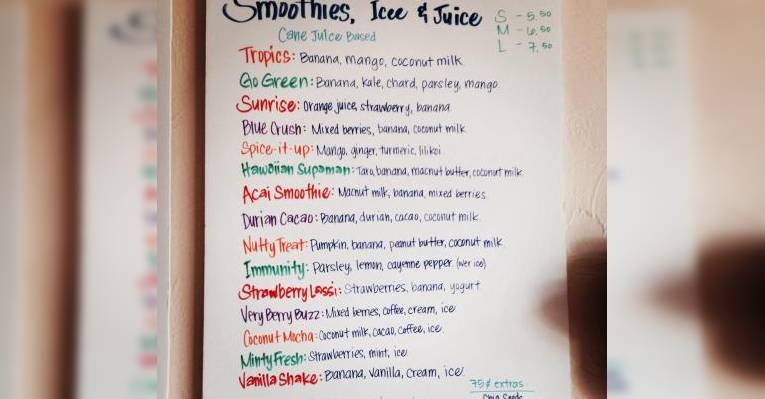 Smoothies, Icee & Juice
S - 5.50
M - 6.50
L - 7.50
Cane Juice Based
Tropics: Banana, mango, coconut milk
Go Green: Banana, kale, chard, parsley, mango
Sunrise: Orange juice, strawberry, banana
Blue Crush: Mixed berries, banana, coconut milk
Spice-it-up: Mango, ginger, turmeric, lilikoi
Hawaiian Supaman: Taro, banana, macnut butter, coconut milk
Acai Smoothie: Macnut milk, banana, mixed berries
Durian Cacao: Banana, durian, cacao, coconut milk
Nutty Treat: Pumpkin, banana, peanut butter, coconut milk
Immunity: Parsley, lemon, cayenne pepper (over ice)
Strawberry Lassi: Strawberries, banana, yogurt
Very Berry Buzz: Mixed berries, coffee, cream, ice
Coconut Mocha: Coconut milk, cacao, coffee, ice
Minty Fresh: Strawberries, mint, ice
Vanilla Shake: Banana, vanilla, cream, ice
75¢ extras
Chia Seeds